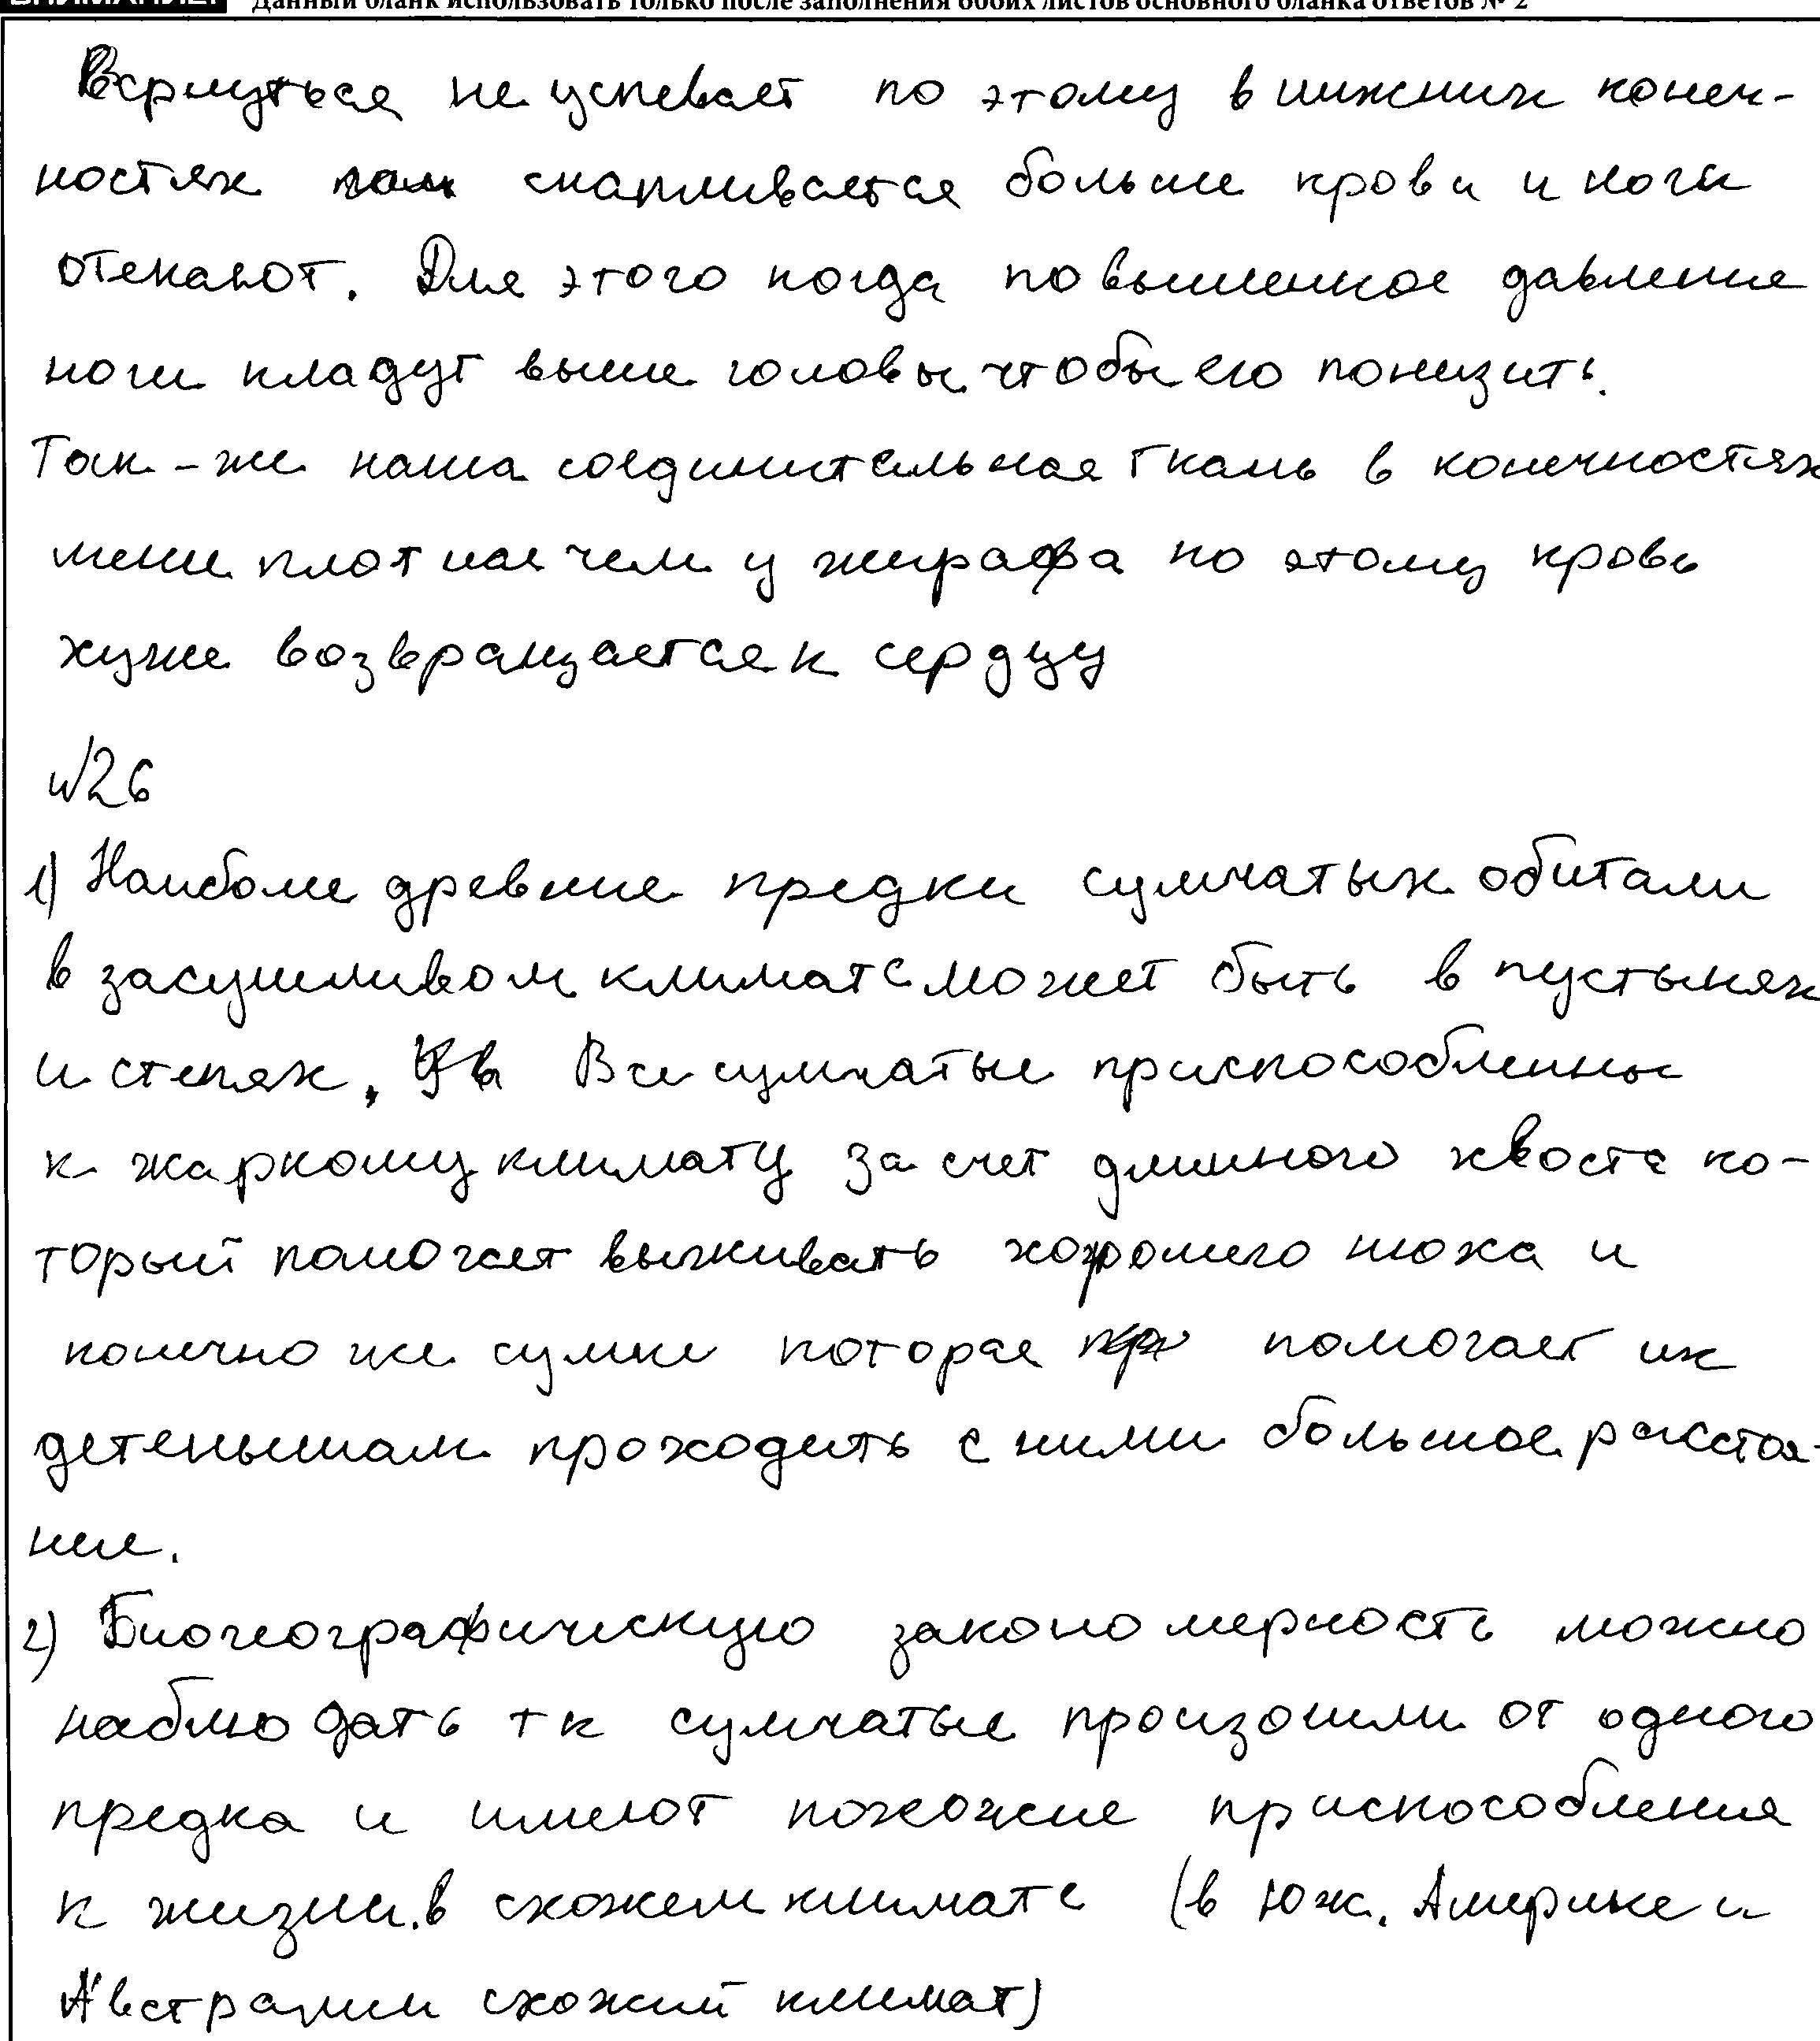 Данный бланк использовать только после заполнения обоих листов основного бланка ответов № 2
Вернуться не успевает по этому в нижних конеч-
ностях скапливается больше крови и ноги
отекают. Для этого когда повышенное давление
ноги кладут выше головы чтобы его понизить.
Так-же наша соединительная ткань в конечностях
мене плотная чем у жирафа по этому кровь
хуже возвращается к сердцу
№26
1) Наиболе древние предки сумчатых обитали
в засушливом климате может быть в пустынях
и степях, Все сумчатые приспособленны
к жаркому климату за счет длинного хвоста ко-
торый помогает выживать хорошего нюха и
конечно же сумке которая помогает их
детенышам проходить с ними большое расстоя-
ние.
2) Биогеографическую закономерность можно
наблюдать тк сумчатые произошли от одного
предка и имеют похожие приспособления
к жизни в схожем климате (в Юж. Америке и
Австралии схожий климат)